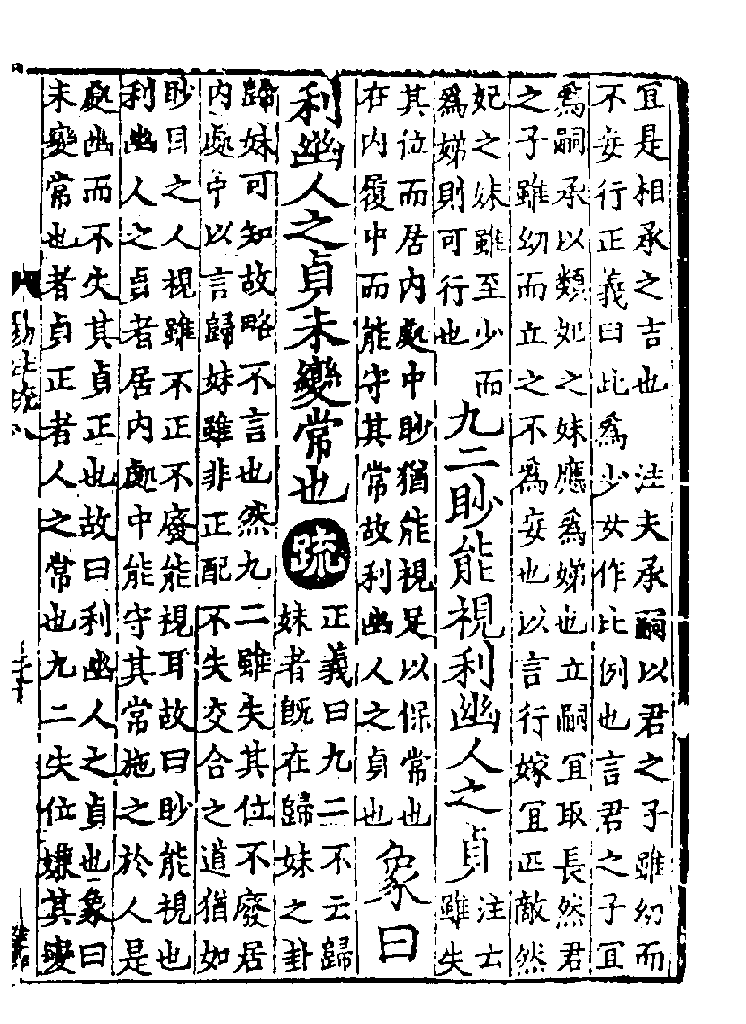 宜是相承之吉也　注夫承嗣以君之子雖幼而
不妄行正義曰此為少女作此例也言君之子宜
為嗣承以類妃之妹應為娣也立嗣宜取長然君
之子雖幼而立之不為妄也以言行嫁宜匹敵然
妃之妹雖至少而
為娣則可行也
九二眇能視利幽人之貞
注云
雖失
其位而居內處中眇猶能視足以保常也
在內履中而能守其常故利幽人之貞也
象曰
利幽人之貞未變常也
疏
正義曰九二不云歸
妹者旣在歸妹之卦
歸妹可知故略不言也然九二雖失其位不廢居
內處中以言歸妹雖非正配不失交合之道猶如
眇目之人視雖不正不廢能視耳故曰眇能視也
利幽人之貞者居內處中能守其常施之於人是
處幽而不失其貞正也故曰利幽人之貞也象曰
未變常也者貞正者人之常也九二失位嫌其變